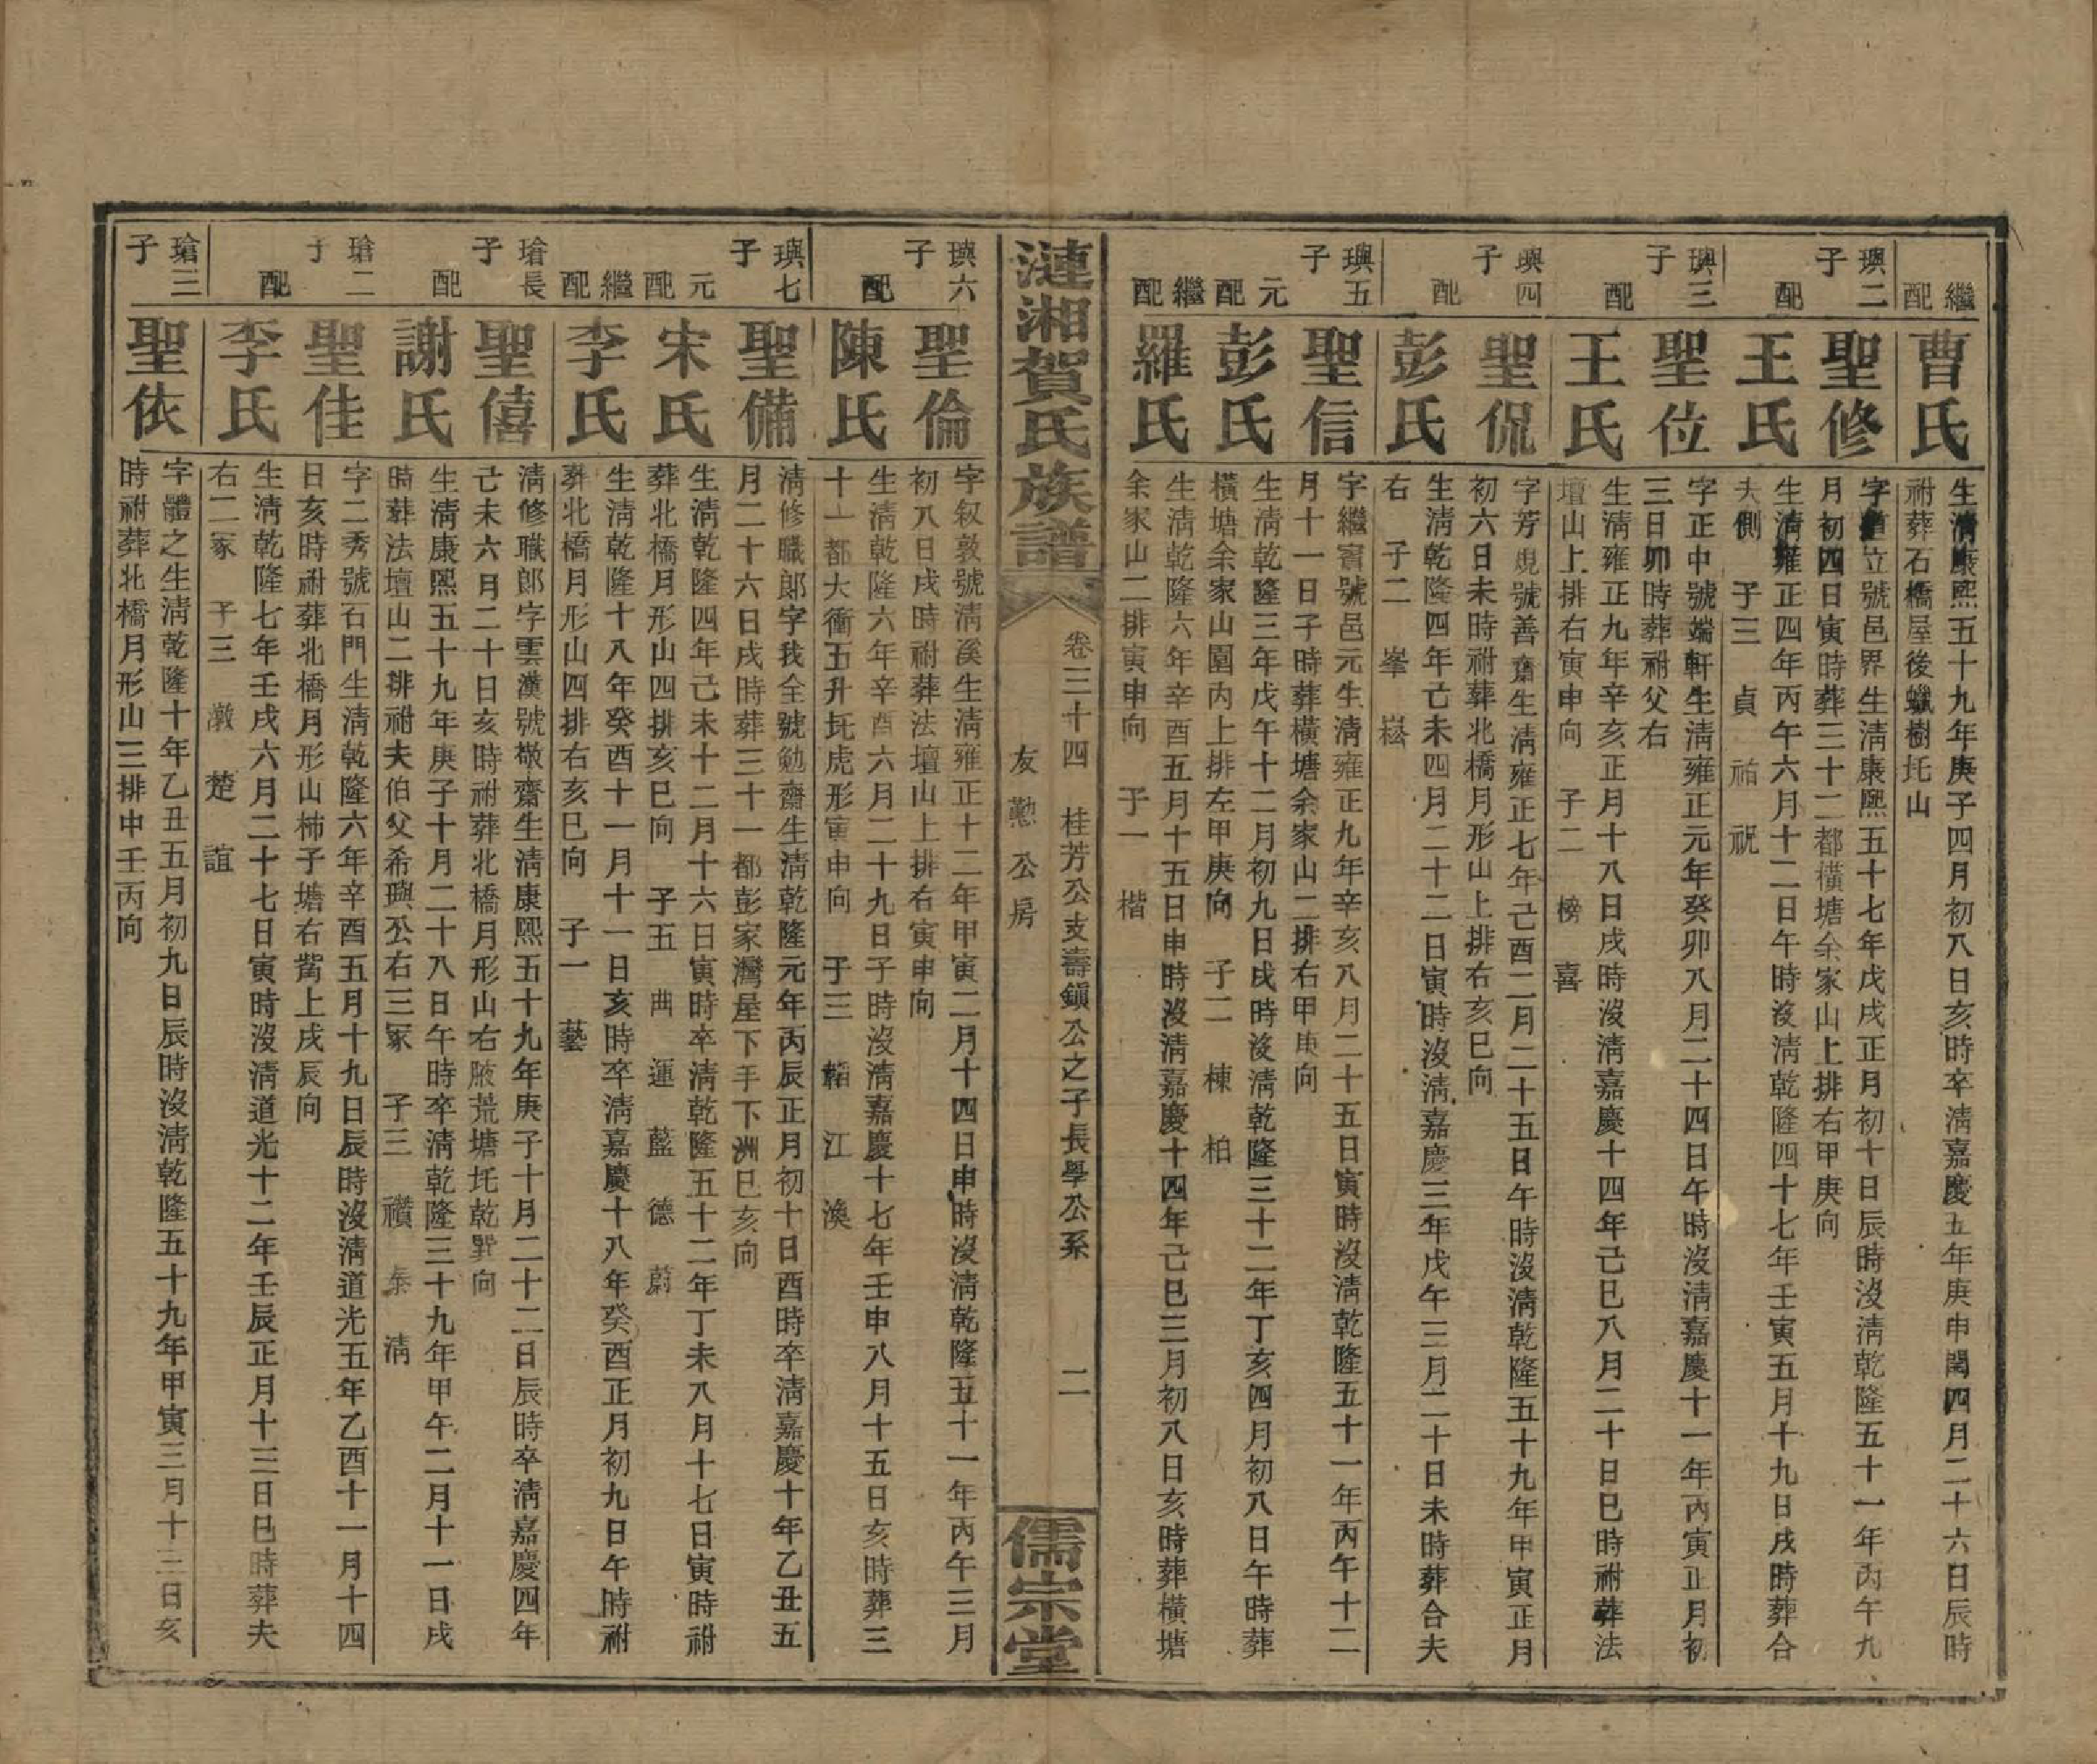 繼配
曹氏
生清康熙五十九年庚子四月初八日亥時卒清嘉慶五年庚申閏四月二十六日辰時
祔葬石橋屋後蠟樹圫山
璵二子
聖修
字道立號邑界生清康熙五十七年戊戌正月初十日辰時沒清乾隆五十一年丙午九
月初四日寅時葬三十二都橫塘余家山上排右甲庚向
配
王氏
生清雍正四年丙午六月十二日午時沒清乾隆四十七年壬寅五月十九日戌時葬合
夫側 子三 貞 祐 祝
璵三子
聖位
字正中號端軒生清雍正元年癸卯八月二十四日午時沒清嘉慶十一年丙寅正月初
三日卯時葬祔父右
配
王氏
生清雍正九年辛亥正月十八日戌時沒清嘉慶十四年己巳八月二十日巳時祔葬法
壇山上排右寅申向 子二 榜 喜
璵四子
聖侃
字芳規號善齋生清雍正七年己酉二月二十五日午時沒清乾隆五十九年甲寅正月
初六日未時祔葬北橋月形山上排右亥巳向
配
彭氏
生清乾隆四年己未四月二十二日寅時沒清嘉慶三年戊午三月二十日未時葬合夫
右 子二 峯 崧
璵五子
聖信
字繼賓號邑元生清雍正九年辛亥八月二十五日寅時沒清乾隆五十一年丙午十二
月十一日子時葬橫塘余家山二排右甲庚向
元配
彭氏
生清乾隆三年戊午十二月初九日戌時沒清乾隆三十二年丁亥四月初八日午時葬
橫塘余家山園內上排左甲庚向 子二 棟 柏
繼配
羅氏
生清乾隆六年辛酉五月十五日申時沒清嘉慶十四年己巳三月初八日亥時葬橫塘
余家山二排寅申向 子一 楷
漣湘賀氏族譜
卷三十四 桂芳公支壽鎭公之子長學公系 二
友懃公房
儒宗堂
璵六子
聖倫
字叙敦號清溪生清雍正十二年甲寅二月十四日申時沒清乾隆五十一年丙午三月
初八日戌時祔葬法壇山上排右寅申向
配
陳氏
生清乾隆六年辛酉六月二十九日子時沒清嘉慶十七年壬申八月十五日亥時葬三
十一都大衝五升圫虎形寅申向 子三 韜 江 渙
璵七子
聖備
清修職郎字我全號勉齋生清乾隆元年丙辰正月初十日酉時卒清嘉慶十年乙丑五
月二十六日戌時葬三十一都彭家灣屋下手下洲巳亥向
元配
宋氏
生清乾隆四年己未十二月十六日寅時卒清乾隆五十二年丁未八月十七日寅時祔
葬北橋月形山四排亥巳向 子五 曲 運 藍 德 蔚
繼配
李氏
生清乾隆十八年癸酉十一月十一日亥時卒清嘉慶十八年癸酉正月初九日午時祔
葬北橋月形山四排右亥巳向 子一 藝
瑲長子
聖僖
清修職郎字雲漢號敬齋生清康熙五十九年庚子十月二十二日辰時卒清嘉慶四年
己未六月二十日亥時祔葬北橋月形山右腋荒塘圫乾巽向
配
謝氏
生清康熙五十九年庚子十月二十八日午時卒清乾隆三十九年甲午二月十一日戌
時葬法壇山二排祔夫伯父希璵公右三冢 子三 禶 泰 清
瑲二子
聖佳
字二秀號石門生清乾隆六年辛酉五月十九日辰時沒清道光五年乙酉十一月十四
日亥時祔葬北橋月形山柿子塘右嵅上戌辰向
配
李氏
生清乾隆七年壬戌六月二十七日寅時沒清道光十二年壬辰正月十三日巳時葬夫
右二冢 子三 潡 楚 誼
瑲三子
聖依
字體之生清乾隆十年乙丑五月初九日辰時沒清乾隆五十九年甲寅三月十三日亥
時祔葬北橋月形山三排申壬丙向